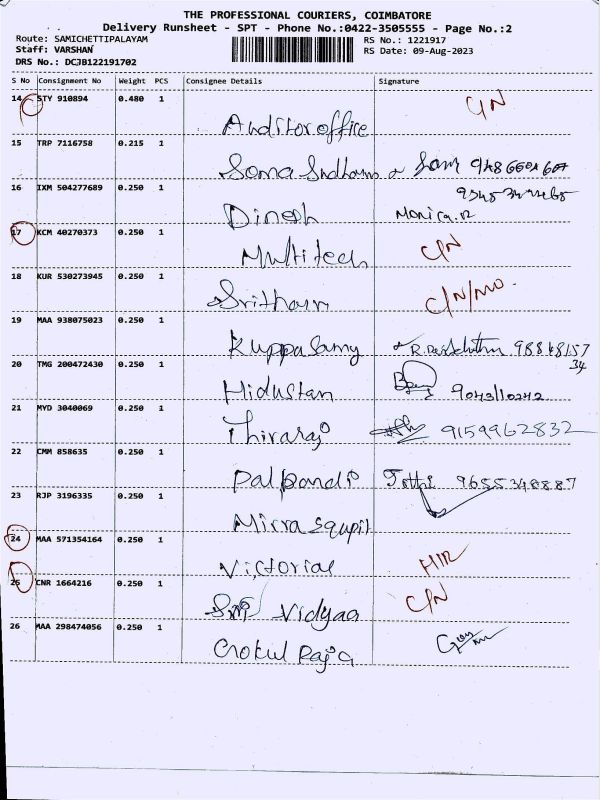 THE PROFESSIONAL COURIERS, COIMBATORE
Delivery Runsheet - SPT - Phone No.:0422-3505555 - Page No.:2
Route: SAMICHETTIPALAYAM
Staff: VARSHAN
DRS No.: DCJB122191702
RS No.: 1221917
RS Date: 09-Aug-2023
S No Consignment No Weight PCS Consignee Details Signature
14 STY 910894 0.480 1
Auditor office C/N
15 TRP 7116758 0.215 1
Soma
16 IXM 504277689 0.250 1
Dinesh Monica.R
17 KCM 40270373 0.250 1
Multi tech C/N
18 KUR 530273945 0.250 1
Sritharn C/N/MO.
19 MAA 938075023 0.250 1
Kuppa Samy
20 TMG 200472430 0.250 1
Hidustan
21 MYD 3040069 0.250 1
Thiraraj 9159962832
22 CMM 858635 0.250 1
Palpandi 9655348887
23 RJP 3196335 0.250 1
Mirra
24 MAA 571354164 0.250 1
Victorial
25 CNR 1664216 0.250 1
Vidyaa C/N
26 MAA 298474056 0.250 1
Gokul Raja